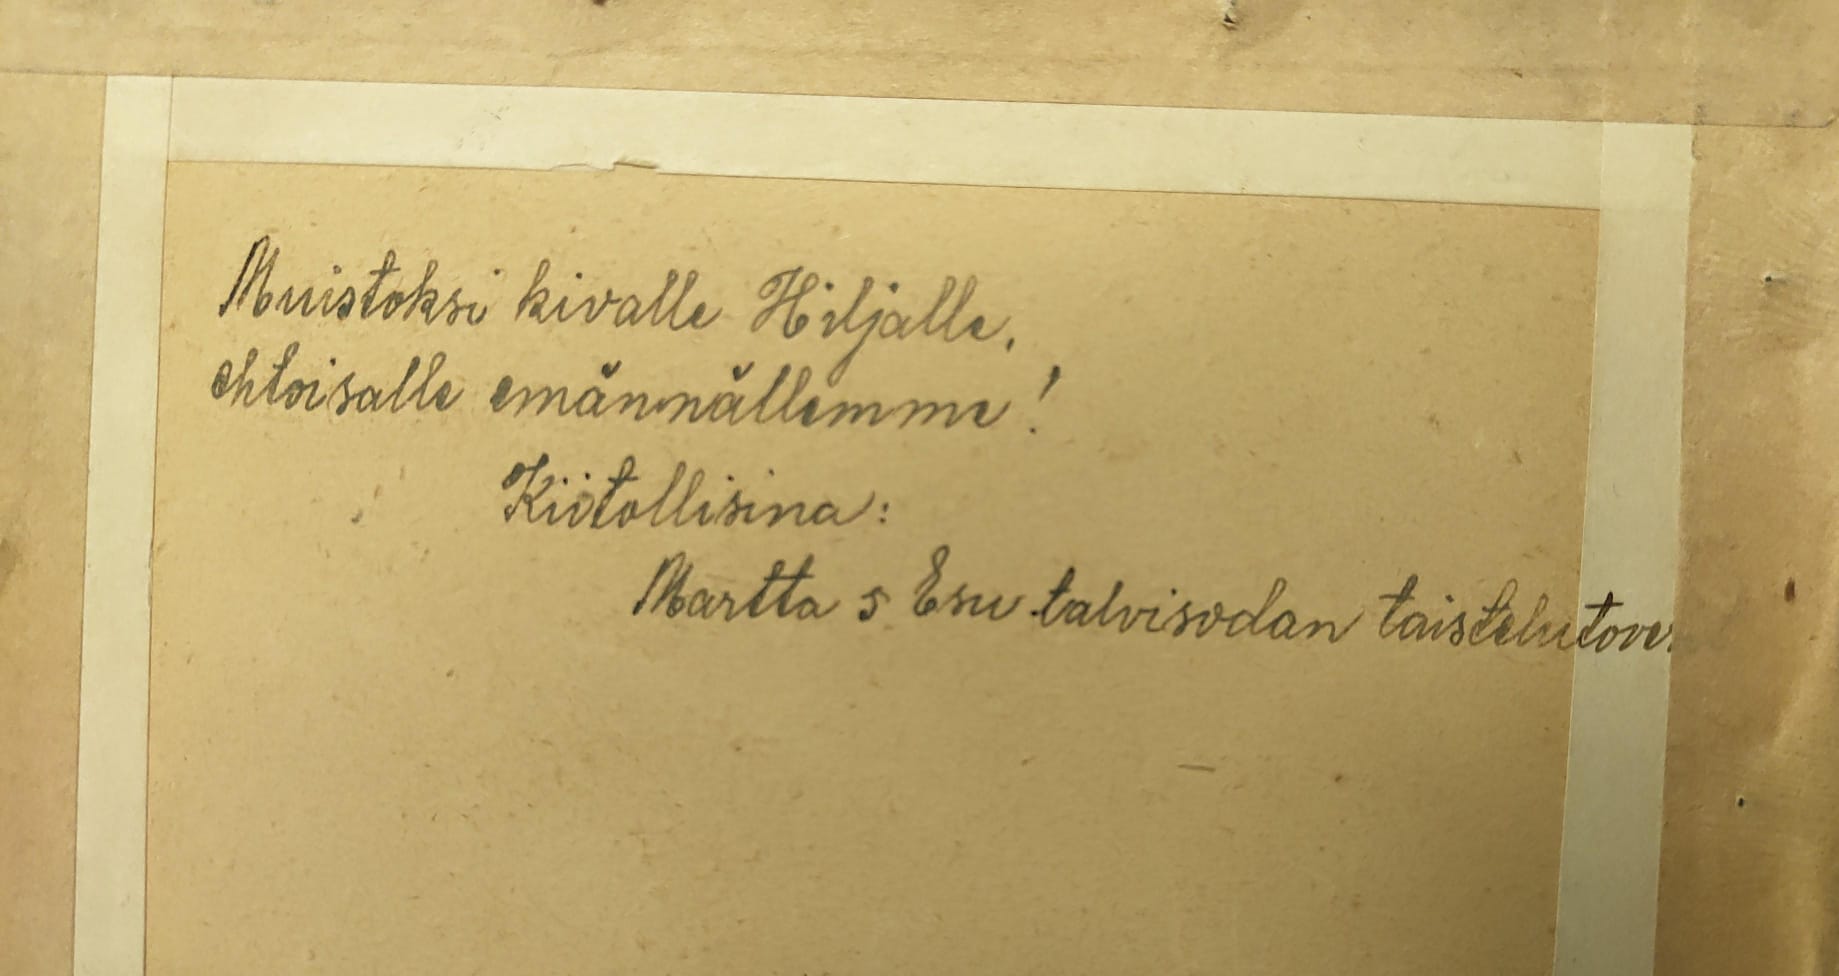 Muistoksi kivalle Hiljalle,
ehtoisalle emännällemme!
Kiitollisina:
Martta s Esu talvisodan taistelutove